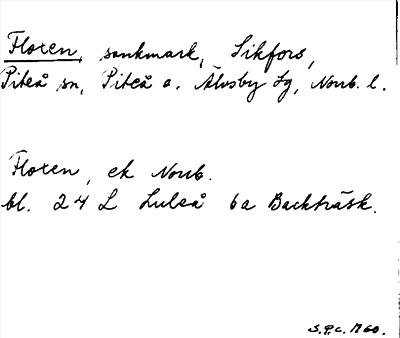 Floten, sankmark, Sikfors,
Piteå sn, Piteå o. Älvsby tg, Norrb. l.
Floten, ek Norrb.
bl. 24 L Luleå 6a Backträsk.
S.P.C. 1960.